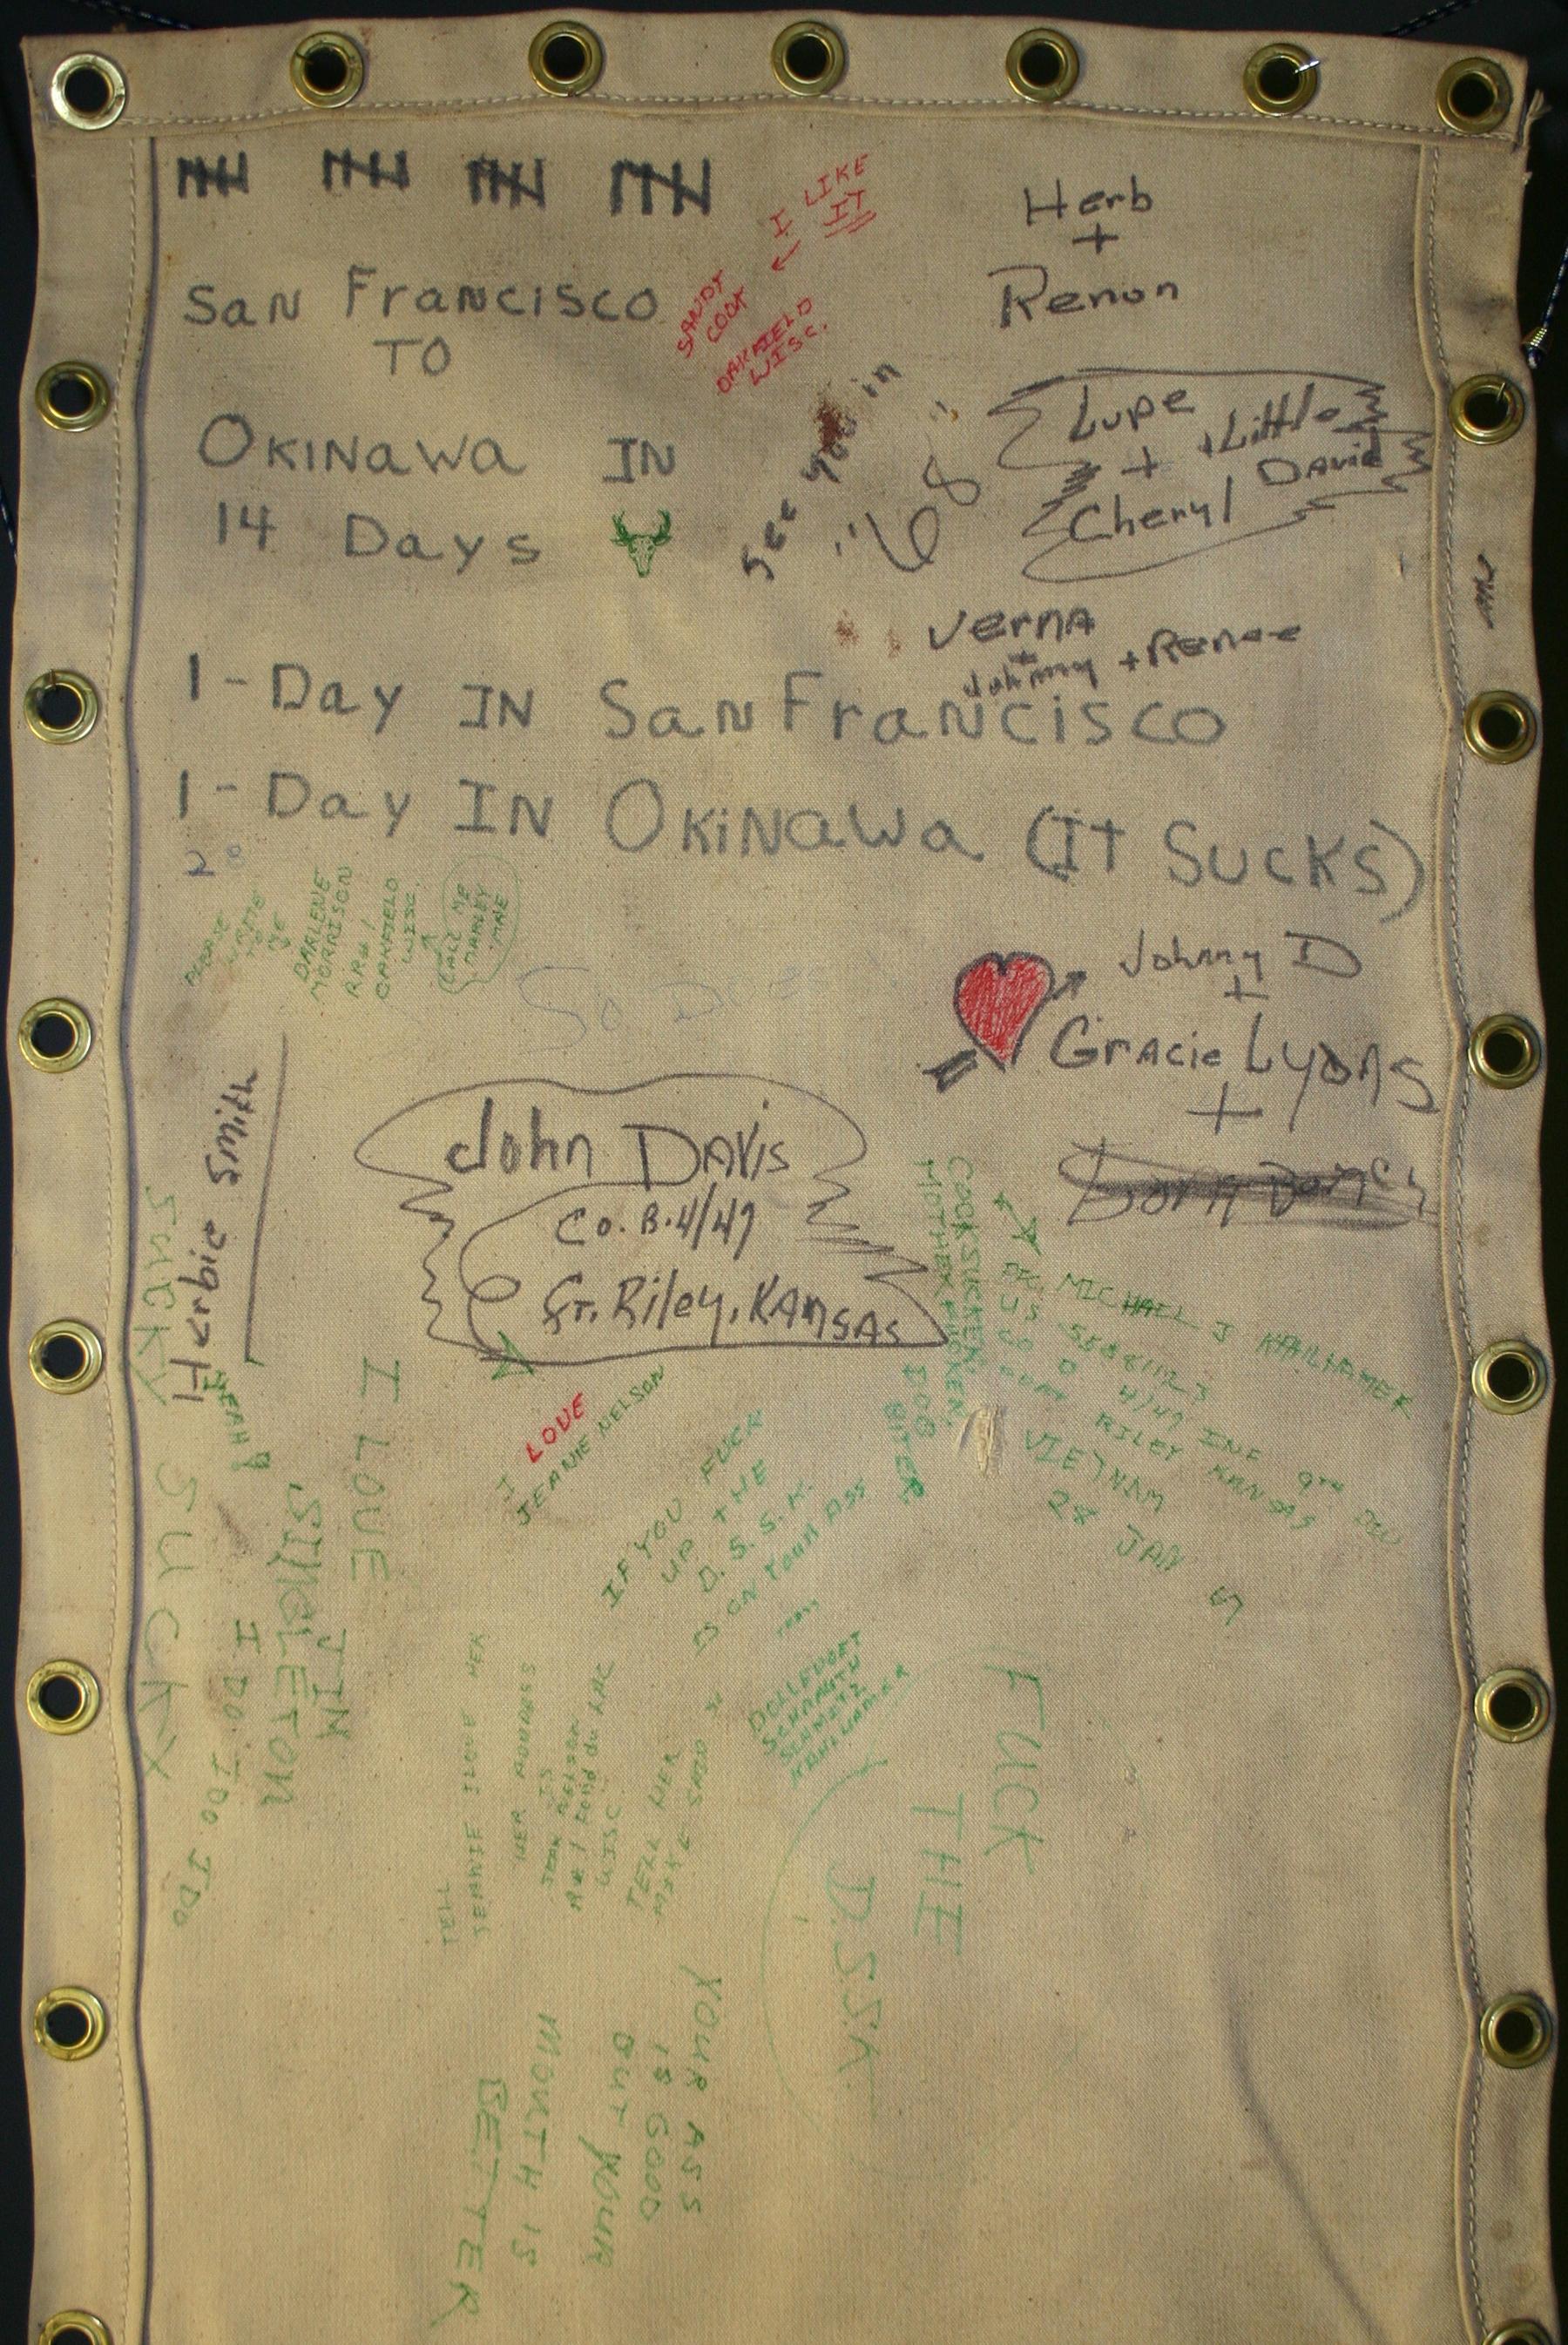 San Francisco
TO
Okinawa IN
14 Days
I LIKE
IT
SANDY
COOK
OAKFIELD
WISC.
See you in
"68"
Herb
+
Renon
Lupe
+ +Little
David
Cheryl
Verna
+
Johnny +Renee
1-Day IN San Francisco
1-Day IN Okinawa (IT SUCKS)
PLEASE
WRITE
TO
ME
DARLENE
MORRISON
RR#1
OAKFIELD
WISC.
CALL ME
DARLEY
MAE
Johnny D
+
Gracie Lyons
+
Herbie Smith
John Davis
Co. B. 4/47
Ft. Riley, Kansas
SUCKY SUCKY
YEAH!
I LOVE
JIM
SINGLETON
I DO. I DO I DO
I LOVE
JEANIE NELSON
COCKSUCKER
MOTHER FUCKER
BOB
RITER
PFC. MICHAEL J KAHLHAMER
US 55881123
CO D 4/47 INF 9TH DIV
FORT RILEY KANSAS
VIETNAM
28 JAN 67
IF YOU FUCK
UP THE
D.S.S.K.
IS ON YOUR ASS
DOLLEVOET
SCHRAUTH
SCHMITZ
KAHLHAMER
TELL
JEANIE I LOVE HER
HER ADDRESS
IS
JEAN NELSON
RR1 Fond du LAC
WISC.
TELL HER
MIKE SAID SO
FUCK
THE
D.S.S.K.
YOUR ASS
IS GOOD
BUT YOUR
MOUTH IS
BETTER